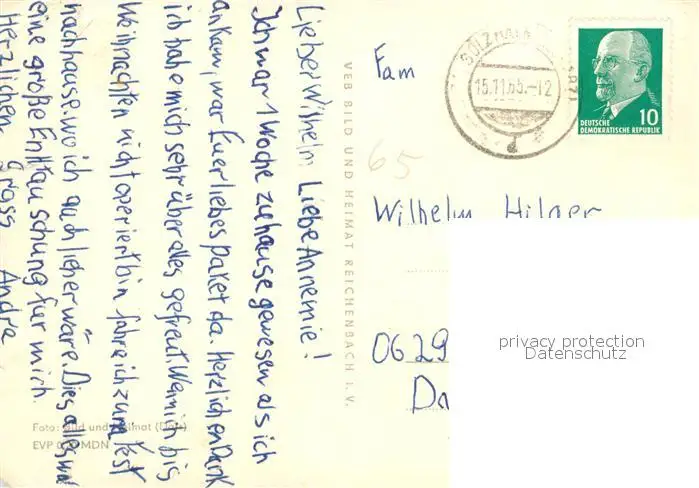 Lieber Wilhelm Liebe Annemie!
Ich war 1 Woche zuhause gewesen als ich
ankam, war Euer liebes Paket da. Herzlichen Dank
ich habe mich sehr über alles gefreut. Wenn ich bis
Weihnachten nicht operiert bin fahre ich zum Fest
nachhause. wo ich auch lieber wäre. Dies alles war
eine große Enttauschung für mich.
Herzlichen gruss Andre
Foto: Bild und Heimat
EVP MDN
VEB BILD UND HEIMAT REICHENBACH I. V.
15.11.65.-12
65
DEUTSCHE
DEMOKRATISCHE REPUBLIK
10
Fam
Wilhelm Hilger
0629
Da
privacy protection
Datenschutz